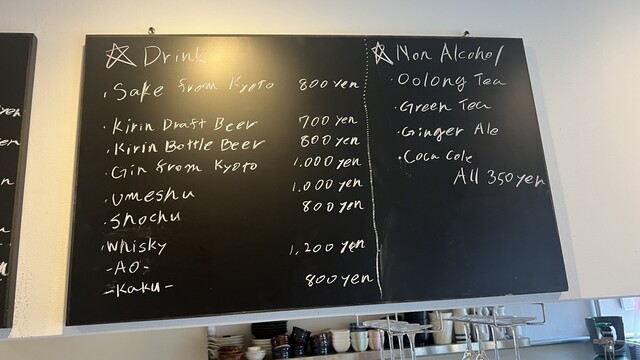 ☆ Drink
・Sake from Kyoto 800 yen
・Kirin Draft Beer 700 yen
・Kirin Bottle Beer 800 yen
・Gin from Kyoto 1.000 yen
・Umeshu 1.000 yen
・Shochu 800 yen
・Whisky
-AO- 1,200 yen
-Kaku- 800 yen
☆ Non Alcohol
・Oolong Tea
・Green Tea
・Ginger Ale
・Coca Cola
All 350 yen